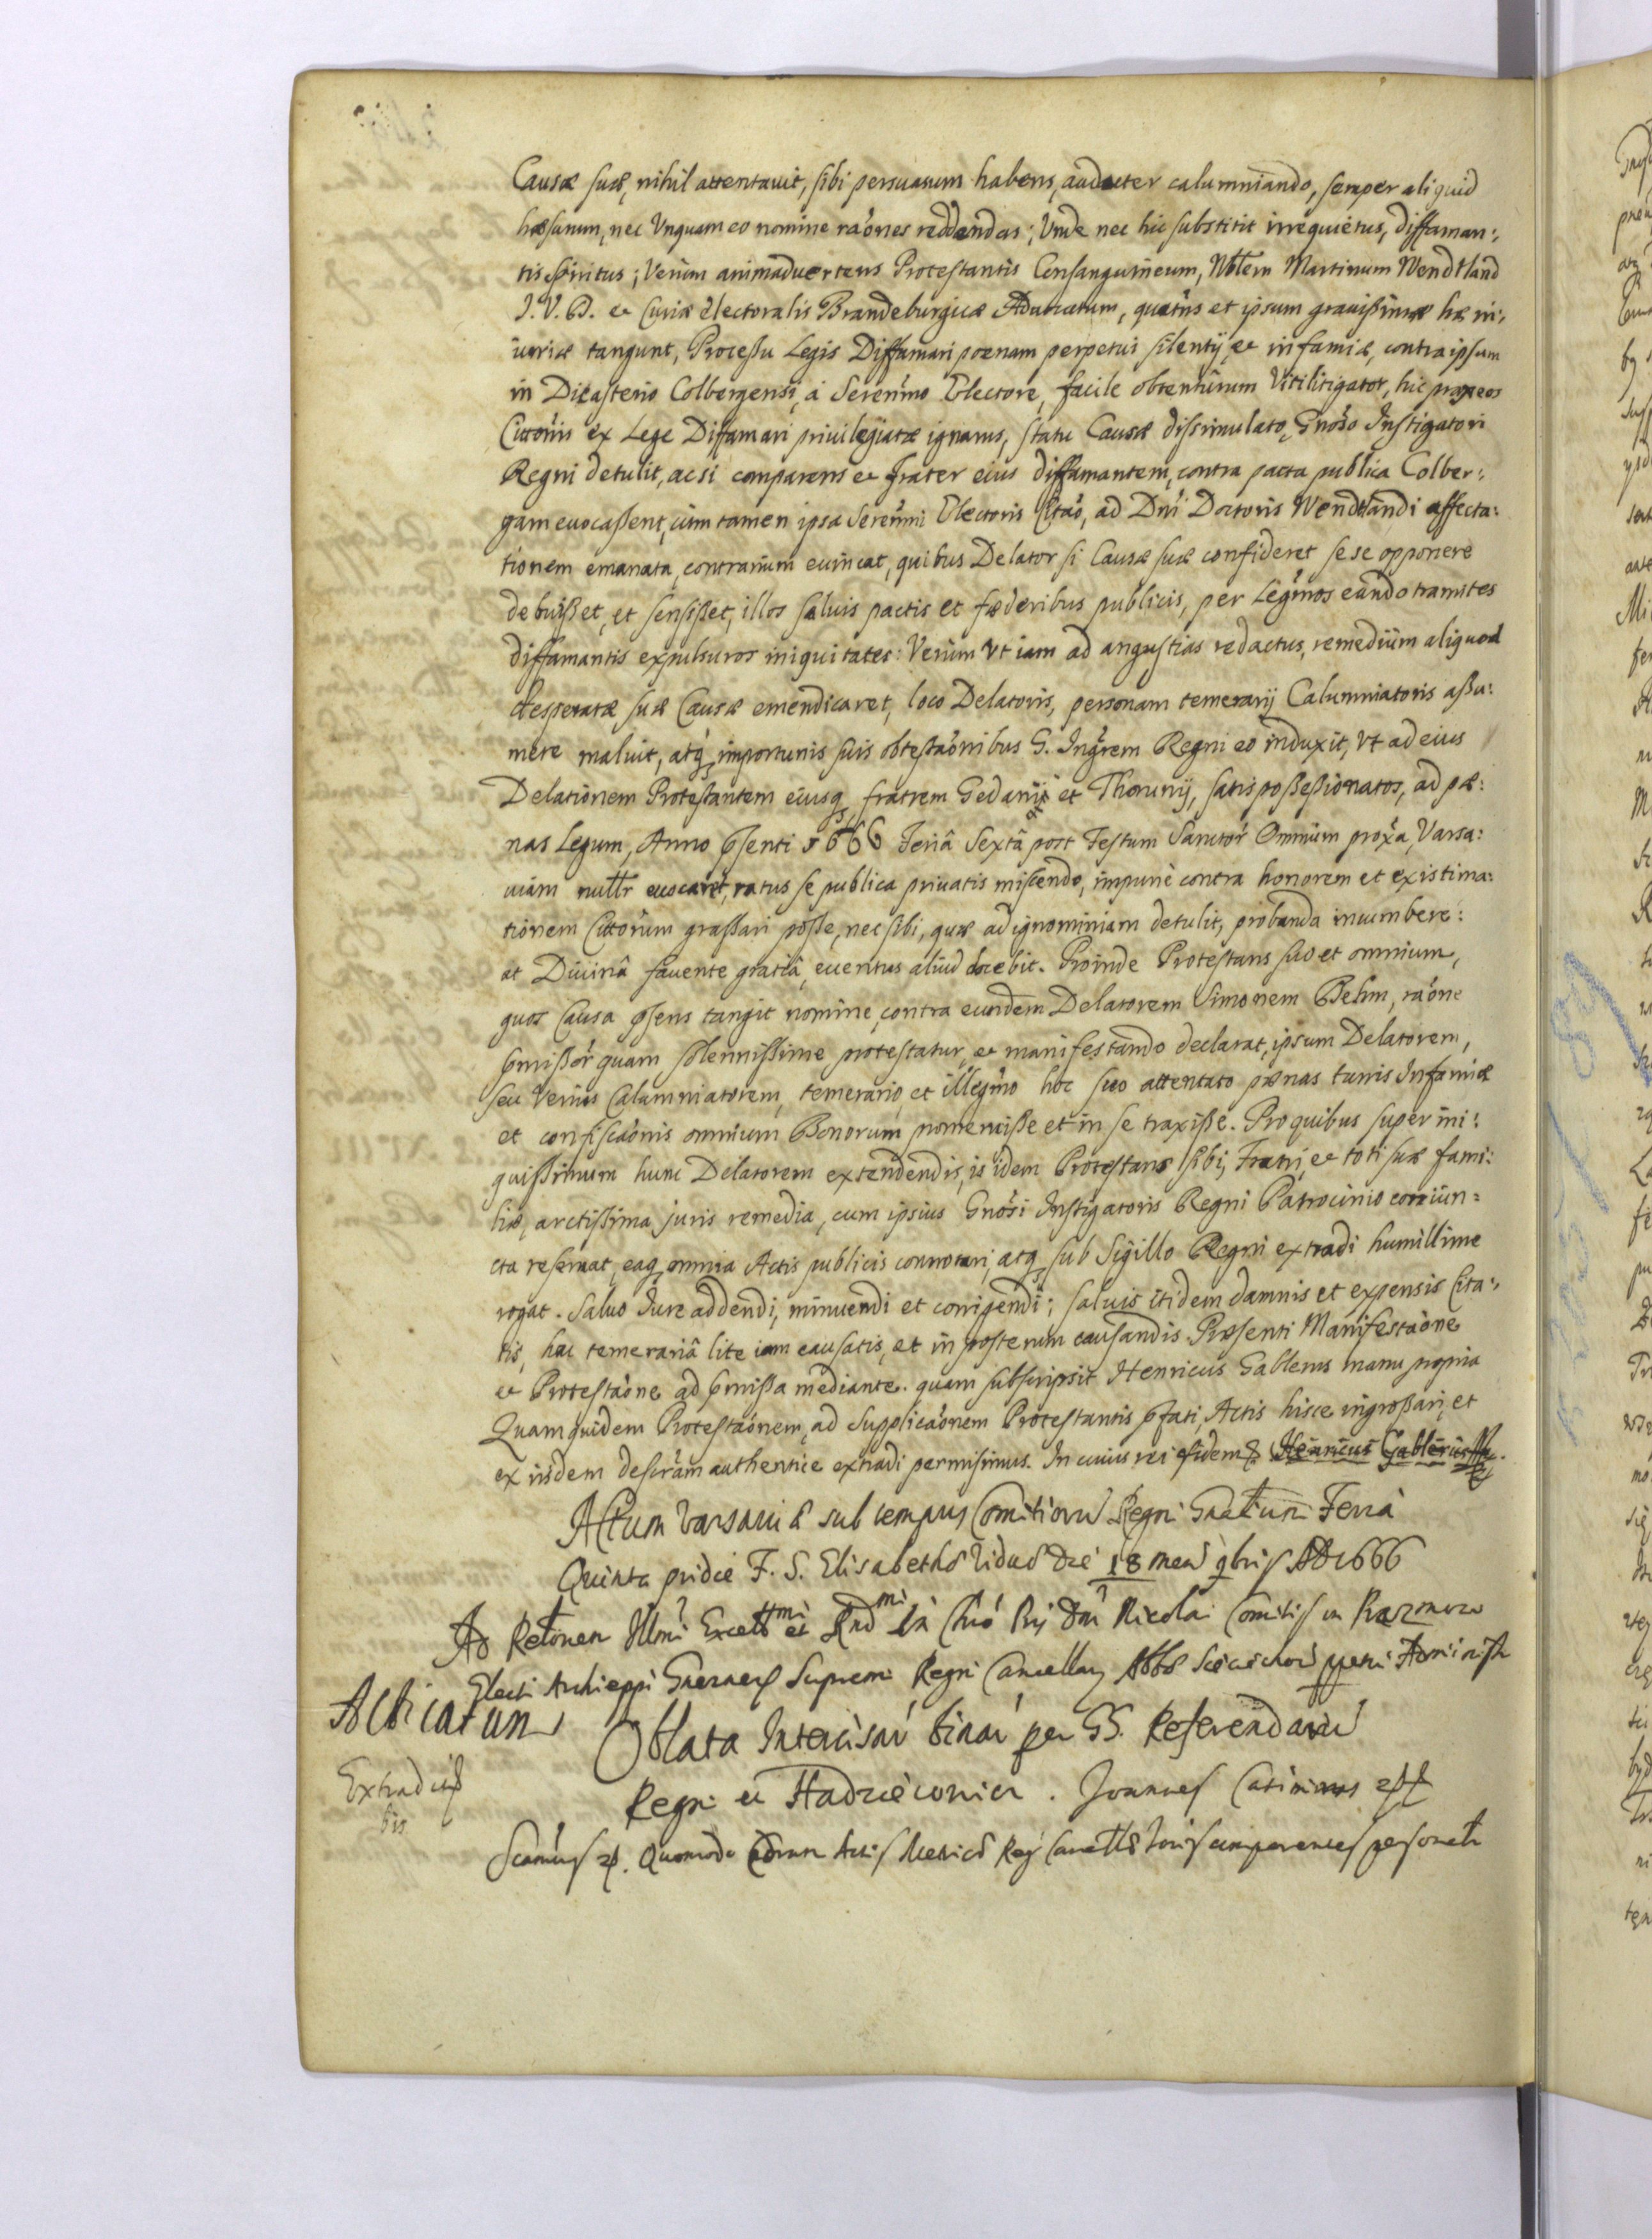 Causæ suæ, nihil attentauit, sibi persuasum habens, audacter calumniando, semper aliquid
hæsurum, nec Unquam eo nomine raónes reddendas; Unde nec hic substitit irrequietus, diffaman:
tis spiritus; Verum animaduertens Protestantis Consanguineum, Nblem Martinum Wendtland
J. V. D. et Curiæ Electoralis Brandeburgicæ Aduocatum, quatns et ipsum grauißimæ hæ in:
iuriæ tangunt, Proceßu Legis Diffamari poenam perpetui silentij, et infamiæ, contra ipsum
in Dicasterio Colbergensi, à Serenmo Electore, facile obtenturum Vitilitigator, hic
Citónis ex Lege Diffamari priuilegiatæ ignarus, statu Causæ dissimulato, Gnoso Instigatori
Regni detulit, ac si comparens et Frater eius diffamantem, contra pacta publica Colber:
gam euocaßent, cum tamen ipsa Serenmi Electoris Citaó, ad Dni Doctoris Wendtlandi affecta:
tionem emanata, contrarium euincat, quibus Delator si Causæ suæ confideret se se opponere
debuißet, et sensißet, illos saluis pactis et fæderibus publicis, per Legmos eundo tramites
diffamantis expulsuros iniquitates: Verum Vt iam ad angustias redactus, remedium aliquod
desperatæ suæ Causæ emendicaret, loco Delatoris, personam temerarij Calumniatoris aßu:
mere maluit, atq importunis suis obtestaónibus G. Ingrem Regni eo induxit, Vt ad eius
Delationem Protestantem eiusq fratrem Gedani et Thorunij, satis poßeßionatos, ad pæ:
nas Legum, Anno psenti 1666 Feriâ Sextâ post Festum Sanctor Omnium proxa, Varsa:
uiam nullr euocaret, ratus se publica priuatis miscendo, impunè contra honorem et existima:
tionem Citorum graßari poße, nec sibi, quæ ad ignominiam detulit, probanda incumbere:
at Diuinâ fauente gratiâ, euentus aliud docebit. Proinde Protestans suo et omnium,
quos Causa psens tangit nomine, contra eundem Delatorem Simonem Behm, raóne
pmißor quam solennißime protestatur, et manifestando declarat, ipsum Delatorem,
seu Verius Calumniatorem, temerario, et illegmo hoc suo attentato pænas Infamiæ
et confiscaónis omnium Bonorum promeruiße et in se traxiße. Pro quibus super ini:
quißimum hunc Delatorem extendendis, is idem Protestans sibi, Fratri, et toti suæ fami:
liæ, arctißima juris remedia, cum ipsius Gnosi Instigatoris Regni Patrocinio coniun:
cta reseruat, eaq omnia Actis publicis connotari, atq sub Sigillo Regni extradi humillime
rogat. Saluo Jure addendi, minuendi et corrigendi; saluis itidem damnis et expensis Cita:
tis, hac temerariâ lite iam causatis, et in posterum causandis. Præsenti Manifestaóne
et Protestaóne ad pmißa mediante. quam subscripsit Henricus Gablerus manu propria
Quamquidem Protestaónem, ad Supplicaónem Protestantis pfati, Actis hisce ingroßari, et
ex iisdem descram authentice extradi permisimus. In cuius rei fidem & Henricus Gablerus
Actum Varsauiæ sub tempus Comitioru Regni Gnalium Feria
Quinta pridie F. S. Elisabethæ Viduæ Die 18 mens 9bris AD 1666
Ad Relonem Illmi Excell et Rndmi in Chro Pris Dni Nicolai Comitis in Prazmow
Electi Archieppi Gnesnen Supremi Regni Cancellarij Sieciechou
Acticatum Oblata Intercisar binar per GS. Referendariu
Extradit
bis
Regni et Hadziewicz. Joannes Casimirus
Quomodo Coram Actis Metrices Regni Cancell comparentes personalr